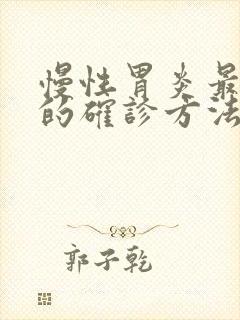 慢性胃炎最
的確診方法
郭子乾